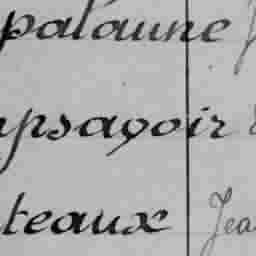 palaune
ypsaçoir
teaux Jea